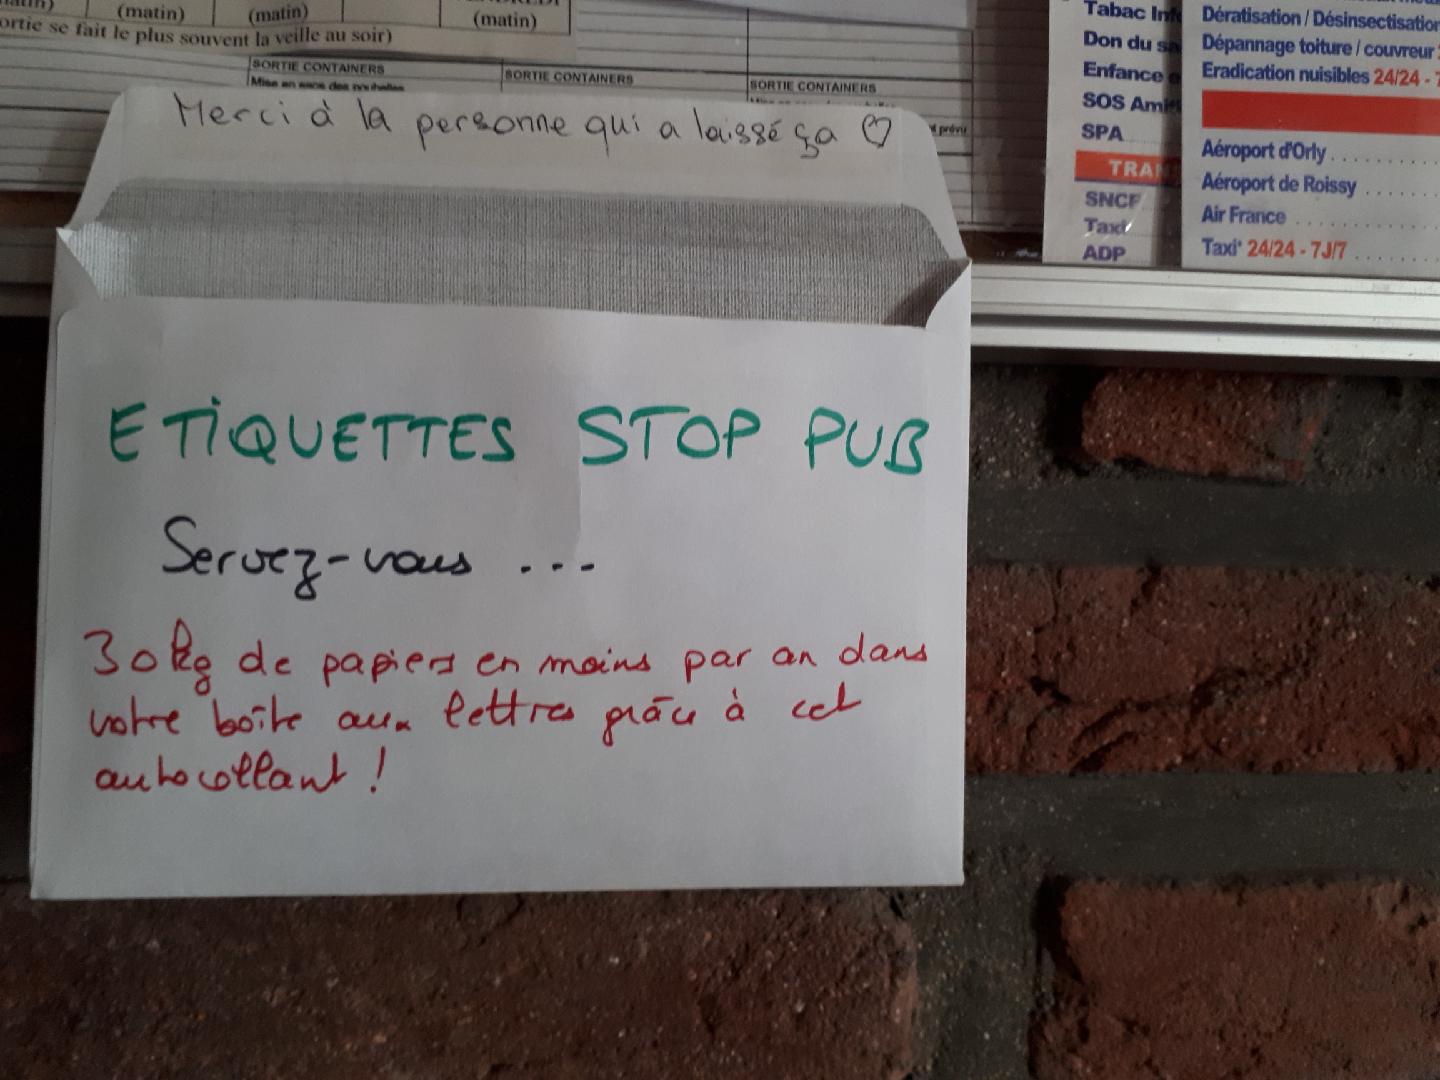 (matin)
(matin)
(matin)
ortie se fait le plus souvent la veille au soir)
SORTIE CONTAINERS
SORTIE CONTAINERS
SORTIE CONTAINERS
Mise en sens des poubelles
prévu
Merci à la personne qui a laissé ça ♡
ETIQUETTES STOP PUB
Servez-vous ...
30kg de papiers en moins par an dans
votre boîte aux lettres grâce à cet
autocollant !
Tabac Inf
Don du sa
Enfance e
SOS Ami
SPA
TRAN
SNCF
Taxi
ADP
Dératisation / Désinsectisation
Dépannage toiture / couvreur
Eradication nuisibles 24/24 - 7
Aéroport d'Orly
Aéroport de Roissy
Air France
Taxi* 24/24 - 7J/7